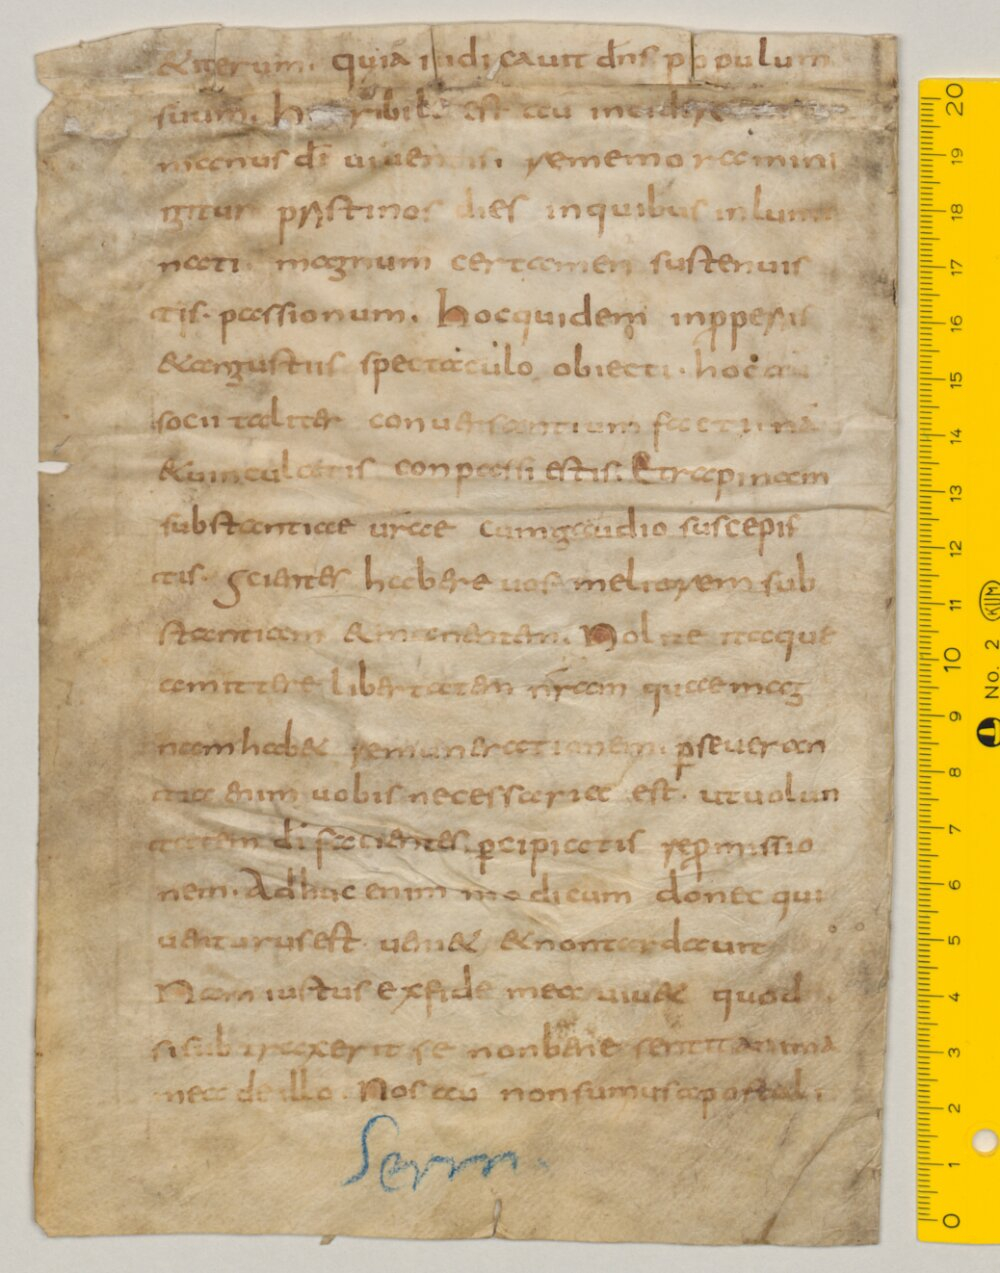 & iterum. quia iudicauit dns populum
suum. horribile est au incidere
manus di uiuentis. rememoramini
igitur pristinos dies inquibus inlumi
nati. magnum certamen sustenuis
tis. passionum. hocquidem inpropeiis
&angustiis spectaculo obiecti. hoc au
socii taliter conuersantium facti na
&uinculatis conpassi estis. &rapinam
substantiae urae cumgaudio suscepis
tis. scientes habere uos meliorem sub
stantiam &manentem. Nolite itaque
amittere libertatem uram quae mag
nam hab& remunerationem. perseueran
tia enim uobis necessaria est. utuolun
tatem di facientes. percipiatis repromissio
nem. Adhuc enim modicum donec qui
uenturus est ueni& &nontardauit
Nam iustus exfide mea uiu& quod
sisubtraxerit se nonbene sentitanima
mea de illo. Nos au nonsumus
Serm.
20
19
18
17
16
15
14
13
12
11
10
9
8
7
6
5
4
3
2
1
0
KUM
No. 2